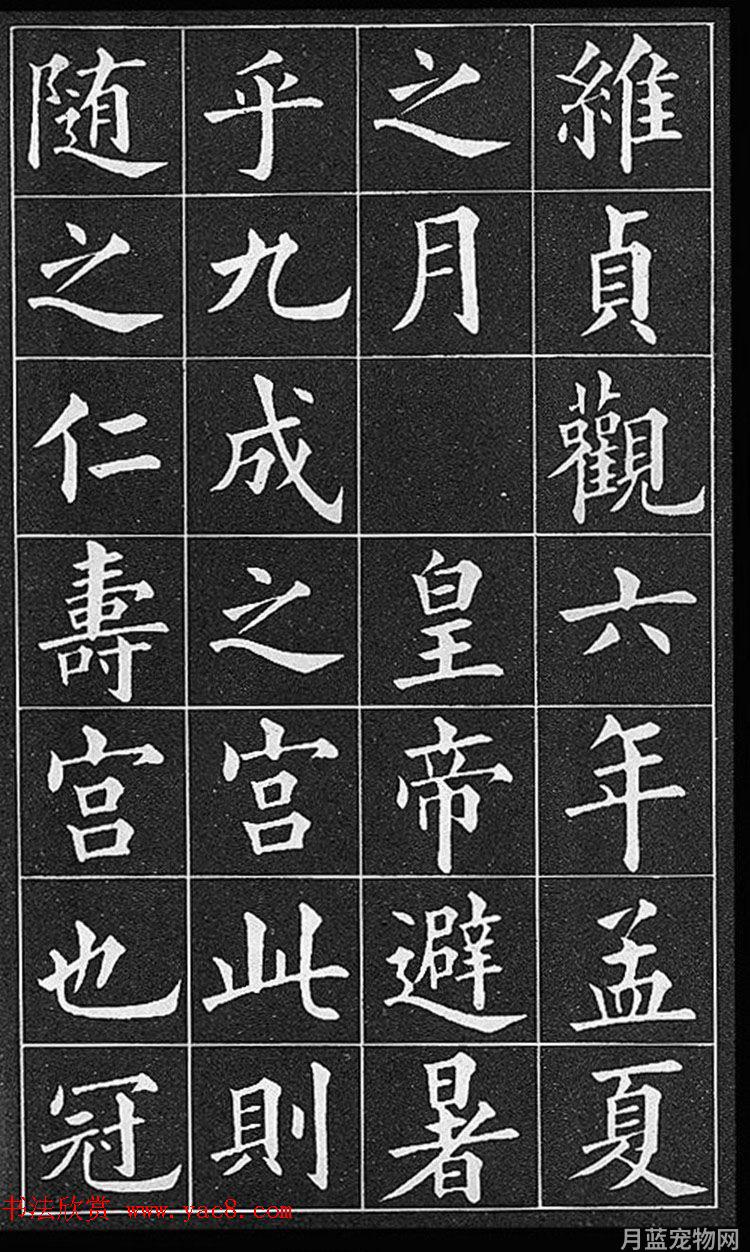 維貞觀六年孟夏
之月皇帝避暑
乎九成之宮此則
随之仁壽宮也冠
书法欣赏 www.yac8.com
月蓝宠物网